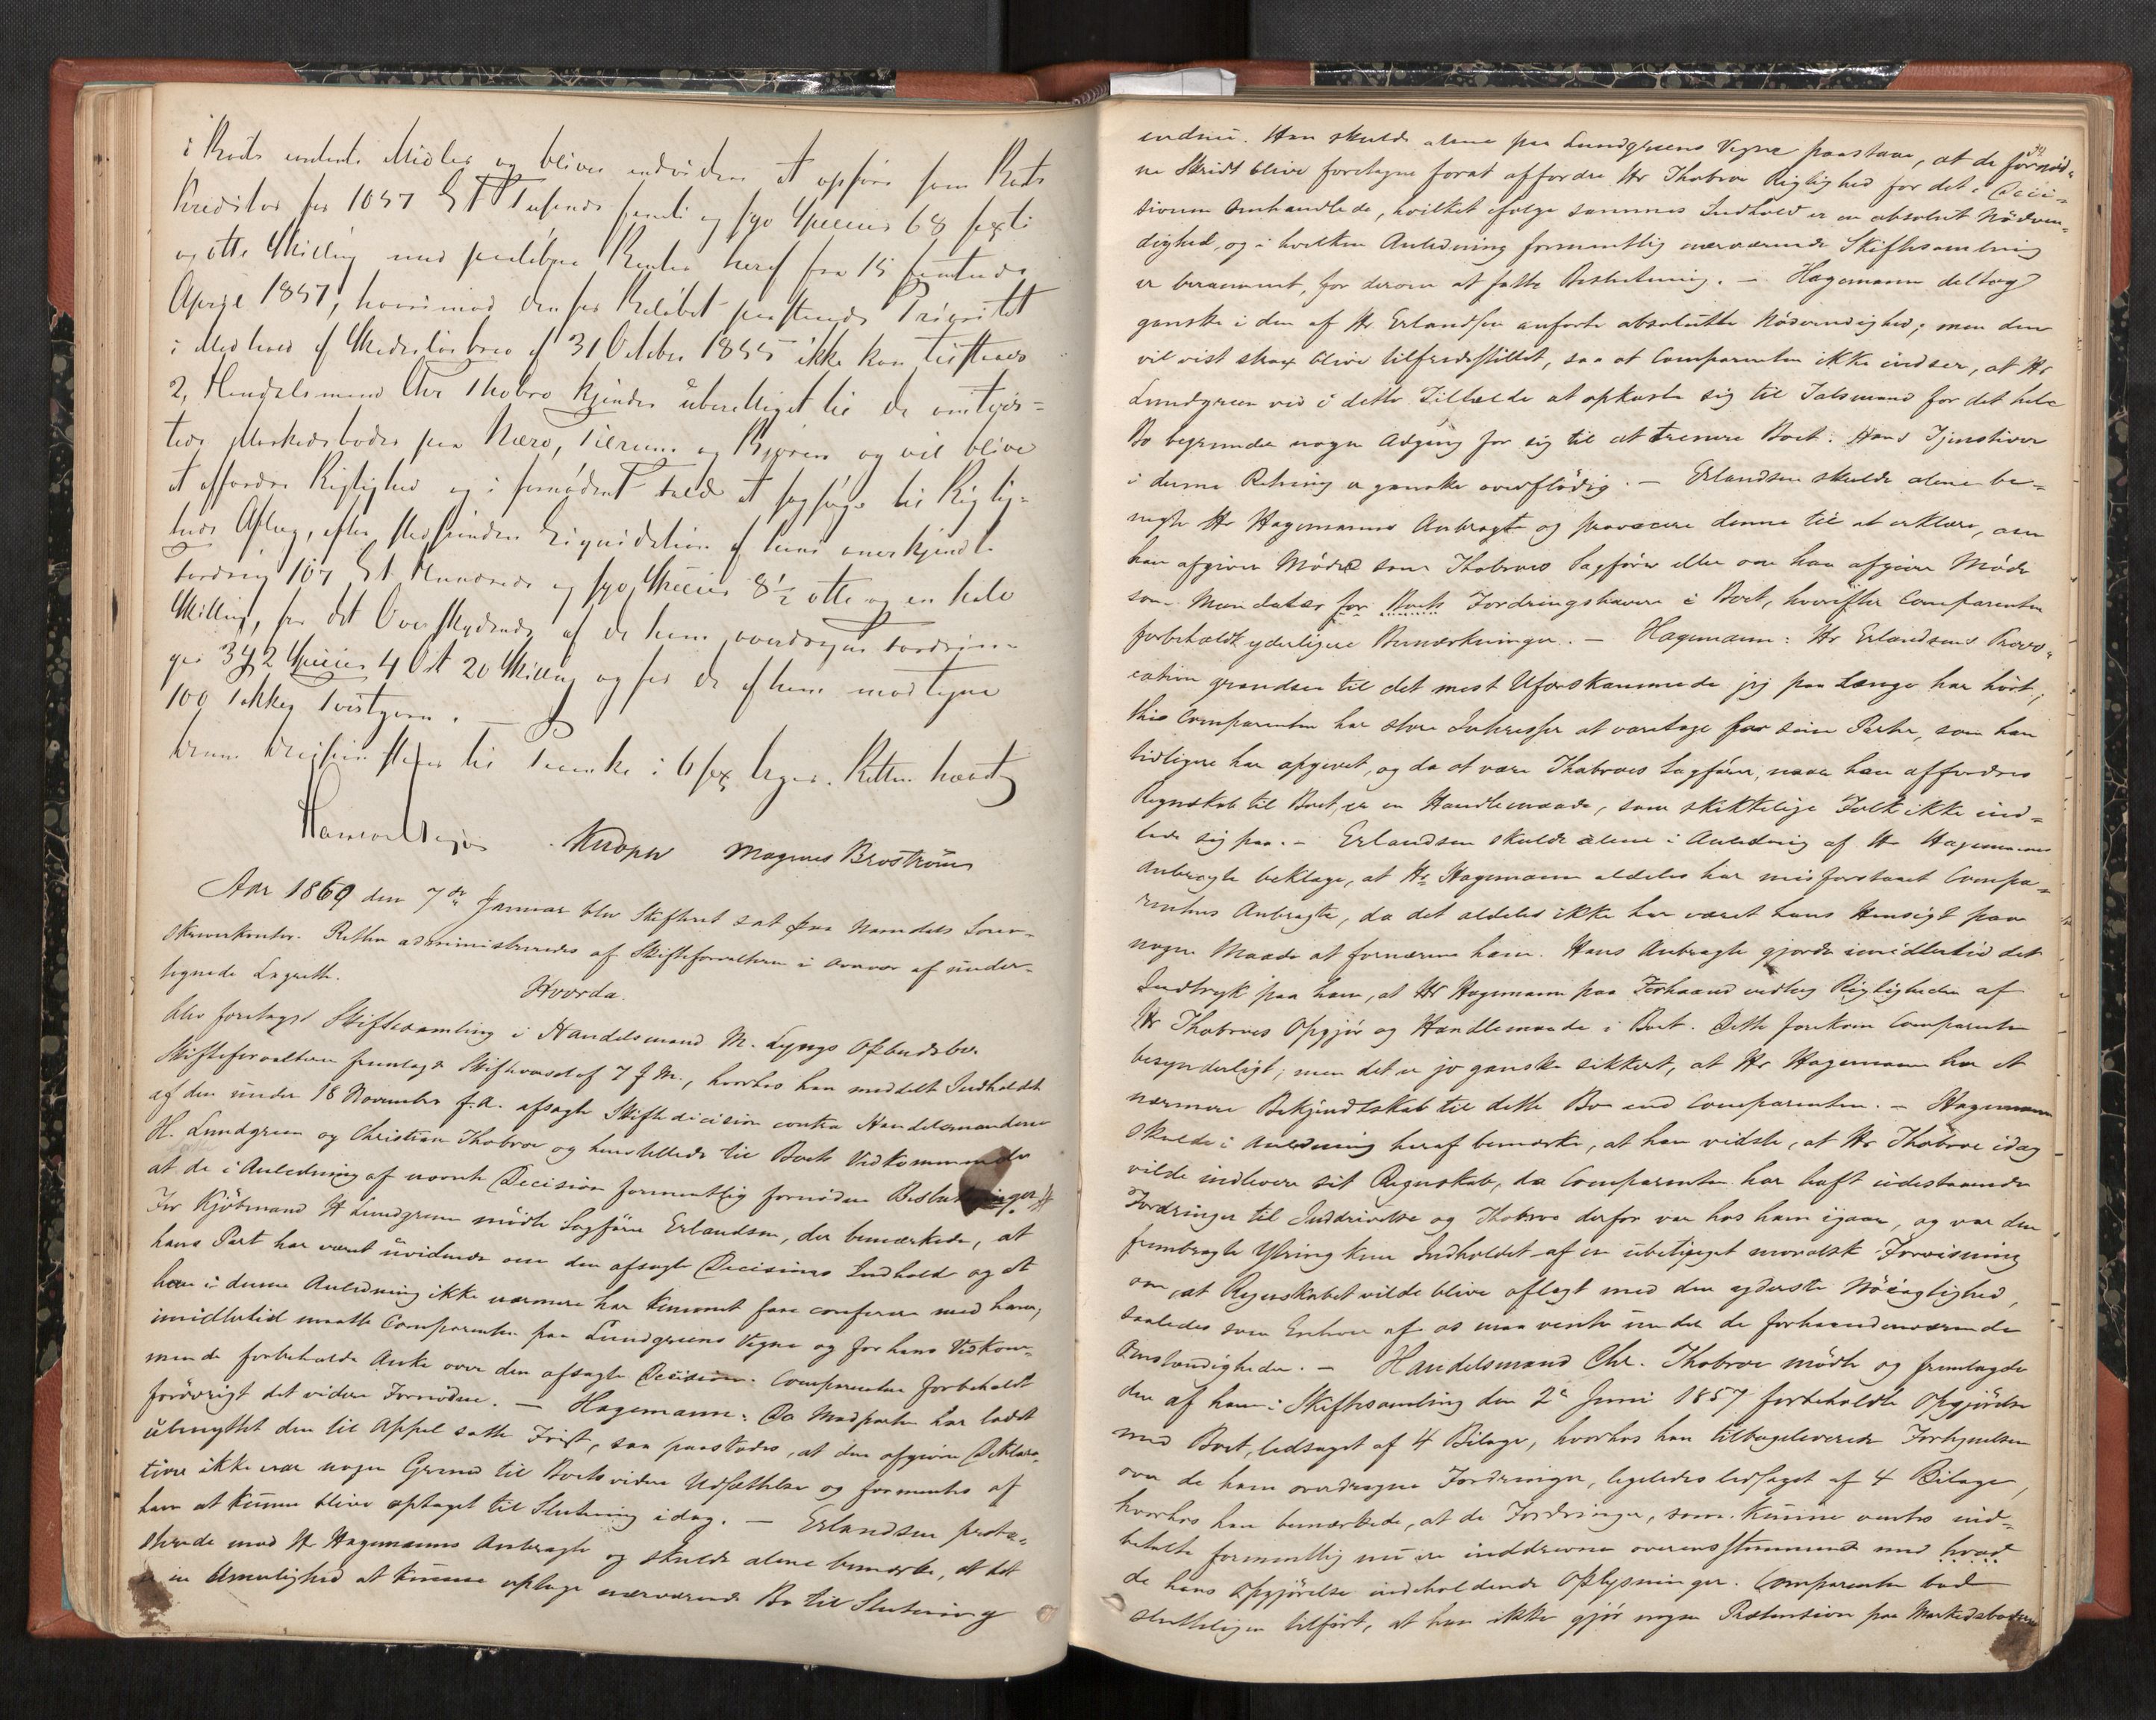 i Boets Midler og bliver endvidere at opføre som Boets
Kreditor for 1057 Et Tusende femti og syv Species 68 sexti
og otte Skilling med Renter heraf fra 15 femtende
April 1857, hvorimod den for Beløbet Prioritet
i Medhold af af 31 October 1855 ikke kan tilstaaes
2, Handelsmand Chr Thobro kjendes uberettiget til de omtvis-
tede Markedsboder paa Nærø, og Bjørøen og vil blive
at affordre Rigtighed og i fornødent Fald at sagsøge til Rigtig-
heds Aflæg, efter stedfunden Liquidation af hans anerkjendte
Fordring 107 Et Hundrede og syv Species 8½ otte og en halv
Skilling, for det Overskydende af de ham overdragne Fordrin-
ger 342 Species 4 Ort 20 Skilling og for de af ham modtagne
100 .
Denne Decision til i 6 sex Uger. Retten hævet
Knoph Magnus Broström
Aar 1869 den 7de Januar blev Skifteret sat paa Namdals Soren-
skriverkontor. Retten administreredes af Skifteforvalteren i Overvær af under-
tegnede Lagrette.
Hvorda.
blev foretaget Skiftesamling i Handelsmand M. Lyngs Opbudsbo.
Skifteforvalteren fremlagde Skiftevarsel af 7 f. M., hvorhos han meddelte Indholdet
af den under 18 November f. A. afsagte Skiftedicision contra Handelsmændene
H. Lundgreen og Christian Thobroe og henstillede til Boets Vedkommende
at de i Anledning af nævnte Decision formentlig fornødne Beslutninger.
For Kjöbmand H Lundgreen mödte Sagförer Erlandsen, der bemærkede, at
hans Part har været uvidende om den afsagte Decisions Indhold og at
han i denne Anledning ikke nærmere har kunnet faae conferere med ham;
imidlertid maatte Comparenten paa Lundgreens Vegne og for hans Vedkom-
mende forbeholde Anke over den afsagte Decision. Comparenten forbeholdt
forövrigt det videre Fornödne. — Hagemann: Da Modparten har ladet
übenyttet den til Appel satte Frist, saa paastodes, at den afgivne Deklara-
tion ikke var nogen Grund til Boets videre Udsættelse og formentes af
ham at kunne blive optaget til Slutning idag. — Erlandsen prote-
sterede mod Hr Hagemanns Anbragte og skulde alene bemærke, at det
er en Umulighed at kunne optage nærværende Bo til Slutning
endnu. Han skulde alene paa Lundgreens Vegne paastaae, at de fornöd-
ne Skridt blive foretagne forat affordre Hr Thobroe Rigtighed for det i Deci-
sionen Omhandlede, hvilket ifølge sammes Indhold er en absolut Nödven-
dighed, og i hvilken Anledning formentlig nærværende Skiftesamling
er berammet, for derom at fatte Beslutning. — Hagemann deltog
ganske i den af Hr Erlandsen anførte absolutte Nödvendighed; men den
vil vist strax blive tilfredsstillet, saa at Comparenten ikke indser, at Hr
Lundgreen ved i dette Tilfælde at opkaste sig til Talsmand for det hele
Bo begrunder nogen Adgang for sig til at trenere Boet. Hans Tjenstiver
i denne Retning er ganske overflödig. — Erlandsen skulde alene be-
negte Hr Hagemanns Anbragte og provocere denne til at erklære, om
han afgiver Möde som Thobroes Sagförer eller om han afgiver Möde
som Mandatar for Boets Fordringshavere i Boet, hvorefter Comparenten
forbeholdt yderligere Bemærkninger. — Hagemann: Hr Erlandsens Provo-
cation grændser til det mest Uforskammede jeg paa Længe har hört;
thi Comparenten har store Interesser at varetage for sine Parter, som han
tidligere har opgivet, og da at være Thobroes Sagförer, naar han affordres
Regnskab til Boet, er en Handlemaade, som skikkelige Folk ikke ind-
lade sig paa. — Erlandsen skulde alene i Anledning af Hr Hagemanns
Anbragte beklage, at Hr Hagemann aldeles har misforstaaet Compa-
rentens Anbragte, da det aldeles ikke har været hans Hensigt paa
nogen Maade at fornærme ham. Hans Anbragte gjorde imidlertid det
Indtryk paa ham, at Hr Hagemann paa Forhaand vedtog Rigtigheden af
Hr Thobroes Opgjör og Handlemaade i Boet. Dette forekom Comparenten
besynderligt; men det er jo ganske sikkert, at Hr Hagemann har et
nærmere Bekjendtskab til dette Bo end Comparenten. — Hagemann
skulde i Anledning heraf bemærke, at han vidste, at Hr Thobroe idag
vilde indlevere sit Regnskab, da Comparenten har haft udestaaende
Fordringer til Inddrivelse og Thobroe derfor var hos ham igaar, og var den
frembragte Ytring kun Indholdet af en ubetinget moralsk Forvisning
om, at Regnskabet vilde blive aflagt med den yderste Nöiagtighed,
saaledes som Enhver af os maa vente under de forhaandenværende
Omstændigheder. — Handelsmand Chr. Thobroe mödte og fremlagde
den af ham i Skiftesamling den 2n Juni 1857 forbeholdte Opgjörelse
med Boet, ledsaget af 4 Bilage, hvorhos han tilbageleverede Fortegnelsen
over de ham overdragne Fordringer, ligeledes ledsaget af 4 Bilage,
hvorhos han bemærkede, at de Fordringer, som kunne ventes ind-
betalte formentlig nu ere inddrevne overensstemmende med hvad
de hans Opgjörelse indeholdende Oplysninger. Comparenten bad
sluttelig tilfört, at han ikke gjör nogen Prætension paa Markedsboderne